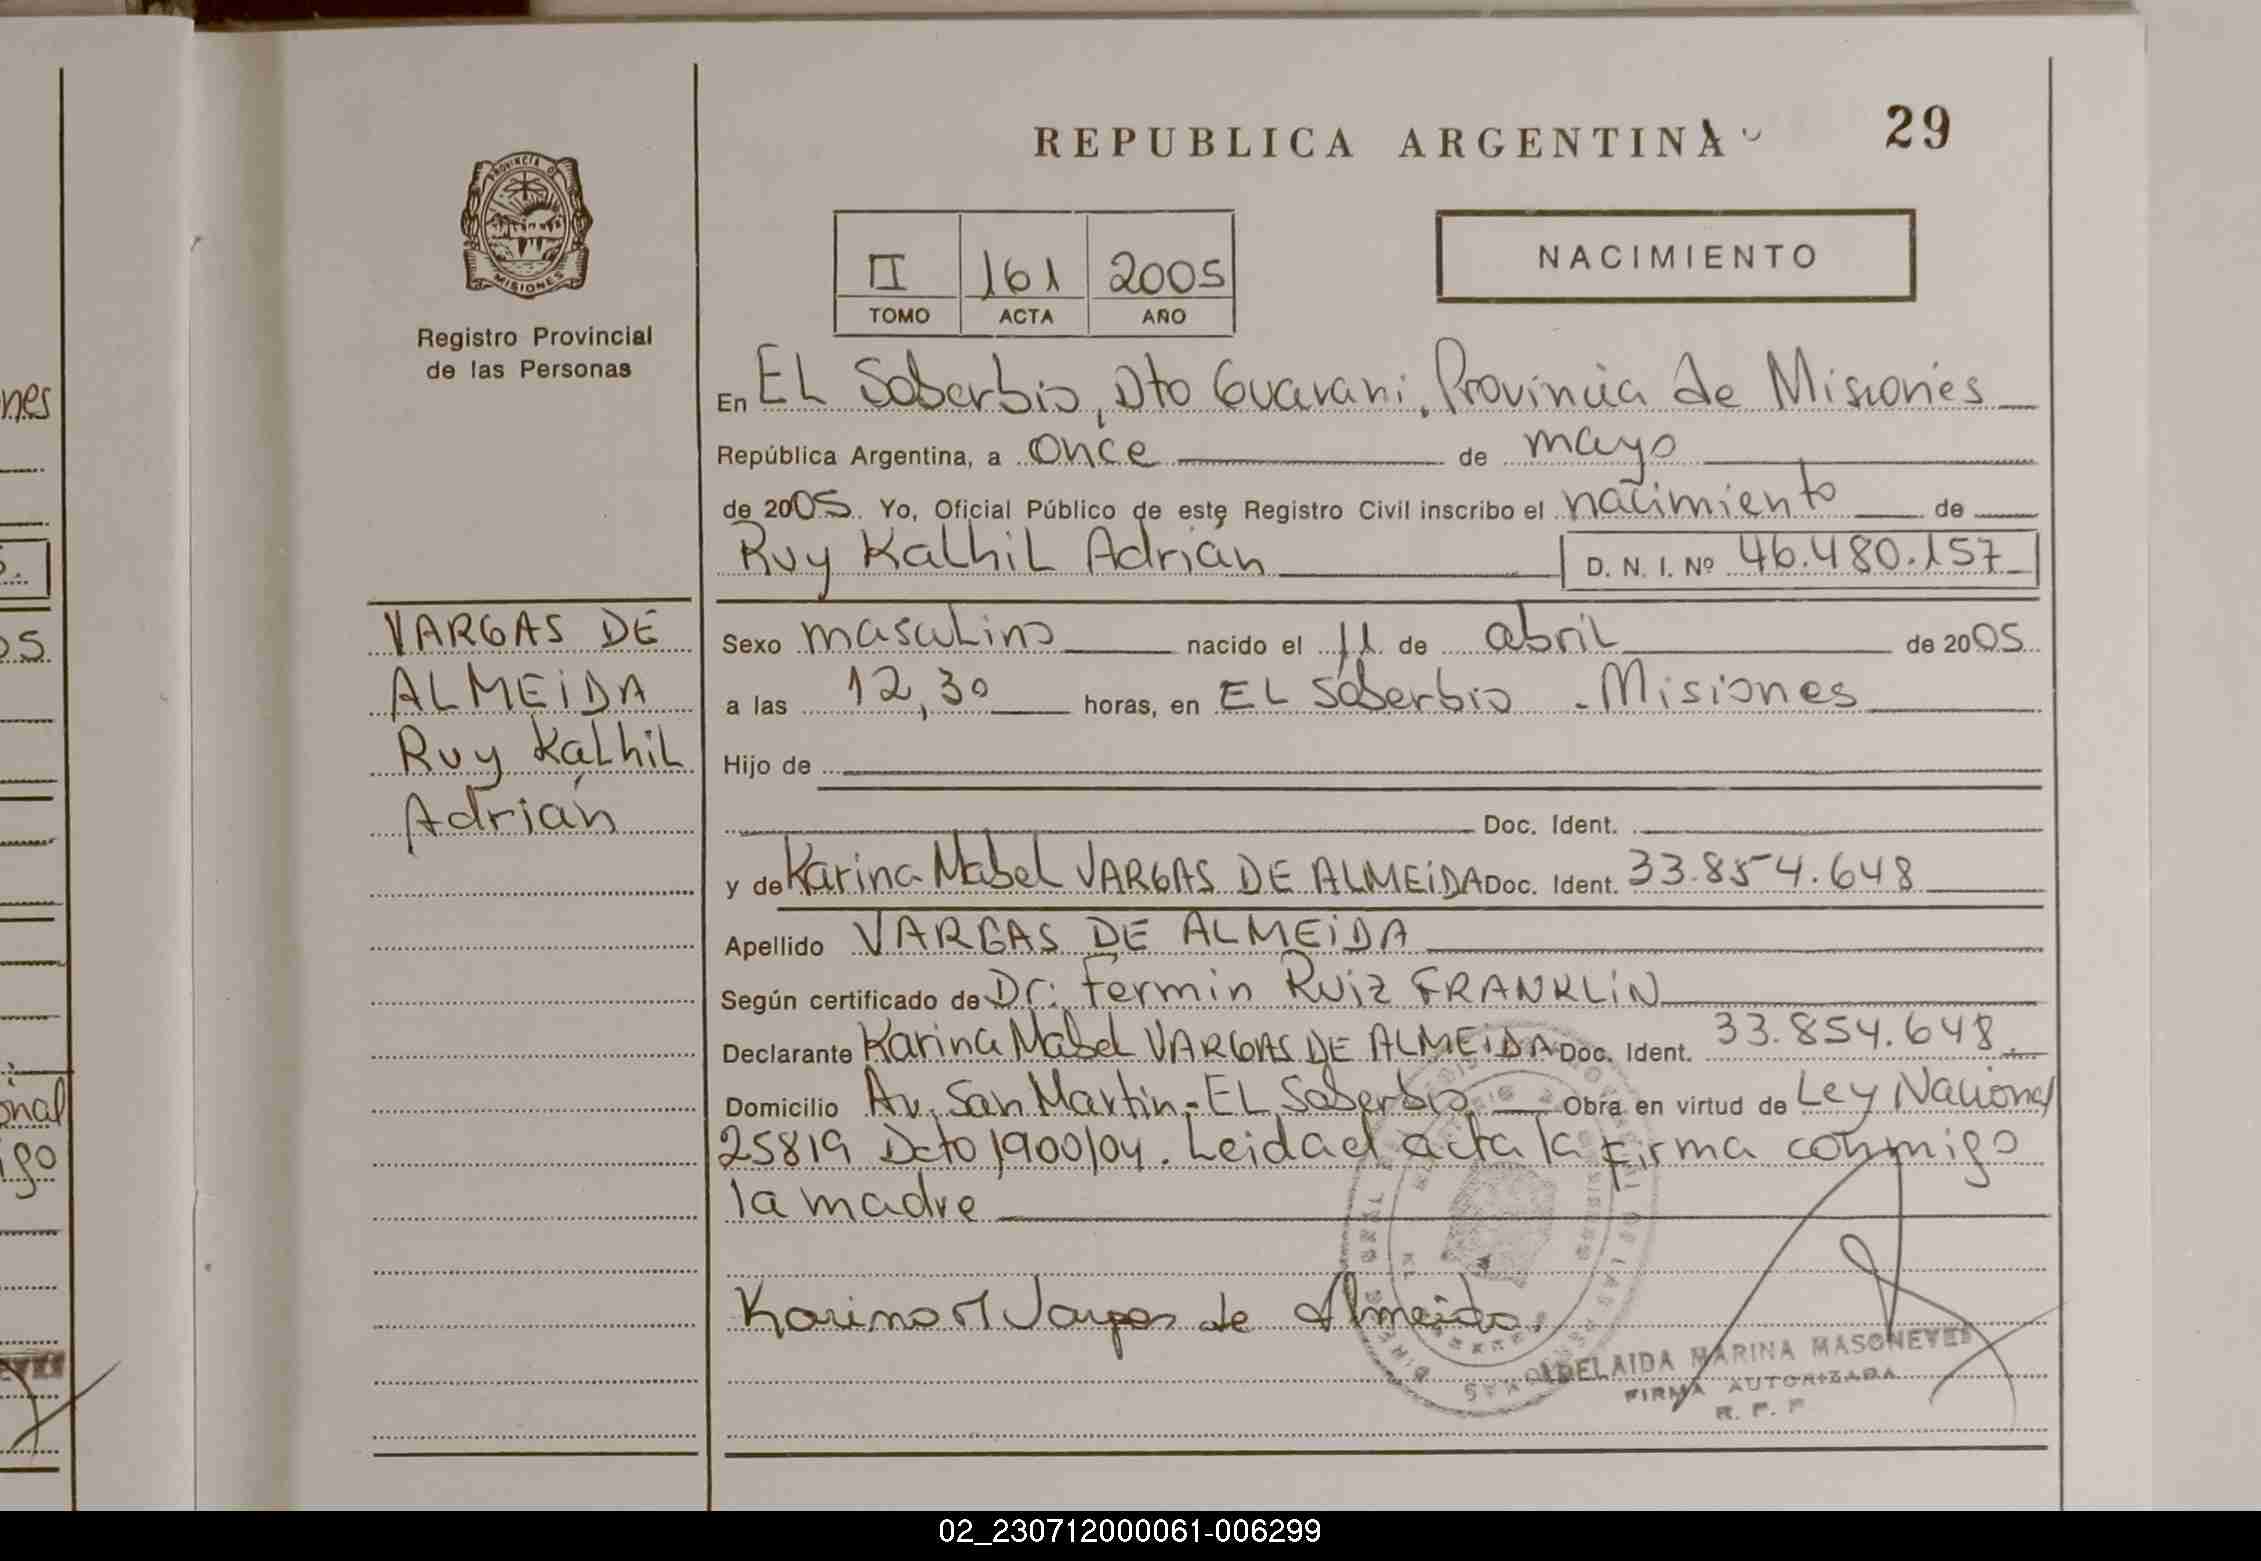 REPUBLICA ARGENTINA
29
PROVINCIA DE
MISIONES
Registro Provincial
de las Personas
II 161 2005
TOMO ACTA AÑO
NACIMIENTO
En EL Soberbio, Dto Guarani. Provincia de Misiones
República Argentina, a once de mayo
de 2005. Yo, Oficial Público de este Registro Civil inscribo el nacimiento de
Ruy Kalhil Adrián D. N. I. Nº 46.480.157
VARGAS DE
ALMEiDA
Ruy Kalhil
Adrián
Sexo masculino nacido el 11 de abril de 2005
a las 12,30 horas, en EL Soberbio - Misiones
Hijo de
Doc. Ident.
y de Karina Mabel VARGAS DE ALMEiDA Doc. Ident. 33.854.648
Apellido VARGAS DE ALMEiDA
Según certificado de Dr: Fermin Ruiz FRANKLiN
Declarante Karina Mabel VARGAS DE ALMEiDA Doc. Ident. 33.854.648
Domicilio Av. San Martin - EL Soberbio Obra en virtud de Ley Nacional
25819 Dcto 1900/04. Leida el acta la firma conmigo
la madre
Karina M Vargas de Almeida
ADELAIDA MARINA MASONEVES
FIRMA AUTORIZADA
R. P. P
nes
5.
05
onal
igo
02_230712000061-006299